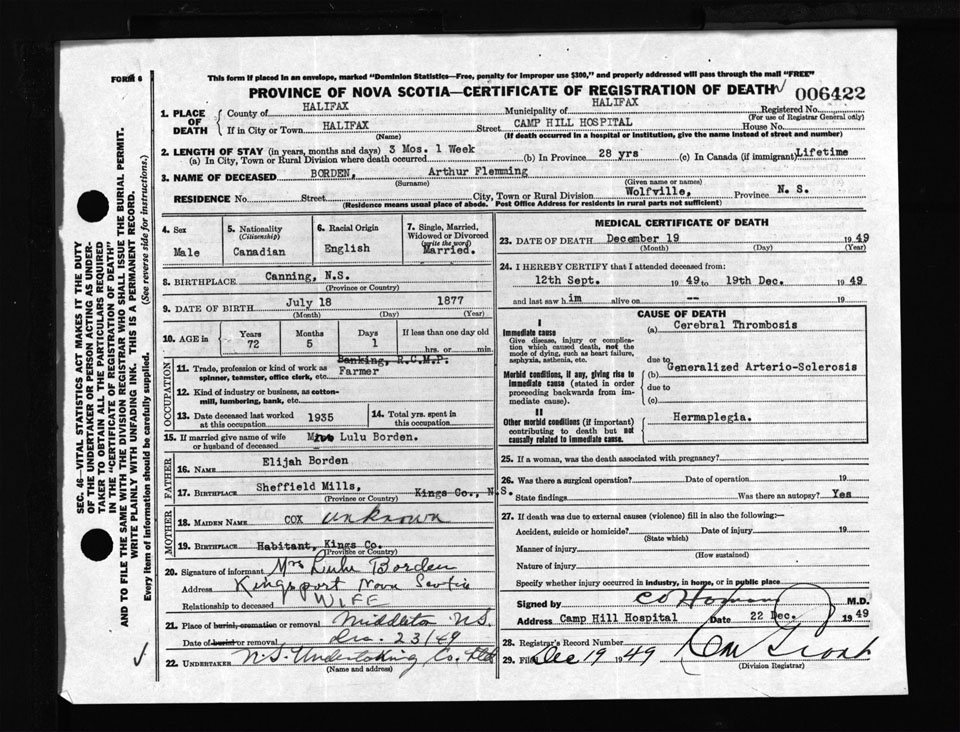 FORM 6
This form if placed in an envelope, marked "Dominion Statistics—Free, penalty for improper use $300," and properly addressed will pass through the mail "FREE"
PROVINCE OF NOVA SCOTIA—CERTIFICATE OF REGISTRATION OF DEATH 006422
1. PLACE OF DEATH
County of HALIFAX Municipality of HALIFAX Registered No.
(For use of Registrar General only)
If in City or Town HALIFAX Street CAMP HILL HOSPITAL House No.
(Name) (If death occurred in a hospital or institution, give the name instead of street and number)
2. LENGTH OF STAY (in years, months and days) 3 Mos. 1 Week
(a) In City, Town or Rural Division where death occurred (b) In Province 28 yrs (c) In Canada (if immigrant) Lifetime
3. NAME OF DECEASED BORDEN, Arthur Flemming
(Surname) (Given name or names)
RESIDENCE No. Street City, Town or Rural Division Wolfville, Province N. S.
(Residence means usual place of abode. Post Office Address for residents in rural parts not sufficient)
4. Sex
Male
5. Nationality
(Citizenship)
Canadian
6. Racial Origin
English
7. Single, Married, Widowed or Divorced
(write the word)
Married.
8. BIRTHPLACE Canning, N.S.
(Province or Country)
9. DATE OF BIRTH July 18 1877
(Month) (Day) (Year)
10. AGE in
Years Months Days If less than one day old
72 5 1 hrs. or min.
OCCUPATION
Banking, R.C.M.P.
11. Trade, profession or kind of work as Farmer
spinner, teamster, office clerk, etc.
12. Kind of industry or business, as cotton-mill, lumbering, bank, etc.
13. Date deceased last worked at this occupation 1935
14. Total yrs. spent in this occupation
15. If married give name of wife or husband of deceased Mrs Lulu Borden.
FATHER
16. NAME Elijah Borden
17. BIRTHPLACE Sheffield Mills, Kings Co., N.S.
(Province or Country)
MOTHER
18. MAIDEN NAME COX unknown
19. BIRTHPLACE Habitant, Kings Co.
(Province or Country)
20. Signature of informant Mrs Lulu Borden
Address Kingsport Nova Scotia
Relationship to deceased WIFE
21. Place of burial, cremation or removal Middleton N.S.
Date of burial or removal Dec. 23/49
22. UNDERTAKER N.S. Undertaking Co. Ltd
(Name and address)
MEDICAL CERTIFICATE OF DEATH
23. DATE OF DEATH December 19 1949
(Month) (Day) (Year)
24. I HEREBY CERTIFY that I attended deceased from:
12th Sept. 1949 to 19th Dec. 1949
and last saw him alive on -- 19
CAUSE OF DEATH
I
Immediate cause
Give disease, injury or complication which caused death, not the mode of dying, such as heart failure, asphyxia, asthenia, etc.
(a) Cerebral Thrombosis
due to
Morbid conditions, if any, giving rise to immediate cause (stated in order proceeding backwards from immediate cause).
(b) Generalized Arterio-Sclerosis
due to
(c)
II
Other morbid conditions (if important) contributing to death but not causally related to immediate cause.
Hermaplegia.
25. If a woman, was the death associated with pregnancy?
26. Was there a surgical operation? Date of operation 19
State findings Was there an autopsy? Yes
27. If death was due to external causes (violence) fill in also the following:—
Accident, suicide or homicide? Date of injury 19
(State which)
Manner of injury
(How sustained)
Nature of injury
Specify whether injury occurred in industry, in home, or in public place
Signed by M.D.
Address Camp Hill Hospital Date 22 Dec. 1949
28. Registrar's Record Number
29. Filed Dec 19 1949
(Division Registrar)
SEC. 46—VITAL STATISTICS ACT MAKES IT THE DUTY
OF THE UNDERTAKER OR PERSON ACTING AS UNDER-
TAKER TO OBTAIN ALL THE PARTICULARS REQUIRED
IN THE "CERTIFICATE OF REGISTRATION OF DEATH"
AND TO FILE THE SAME WITH THE DIVISION REGISTRAR WHO SHALL ISSUE THE BURIAL PERMIT.
WRITE PLAINLY WITH UNFADING INK. THIS IS A PERMANENT RECORD.
Every item of information should be carefully supplied. (See reverse side for instructions.)